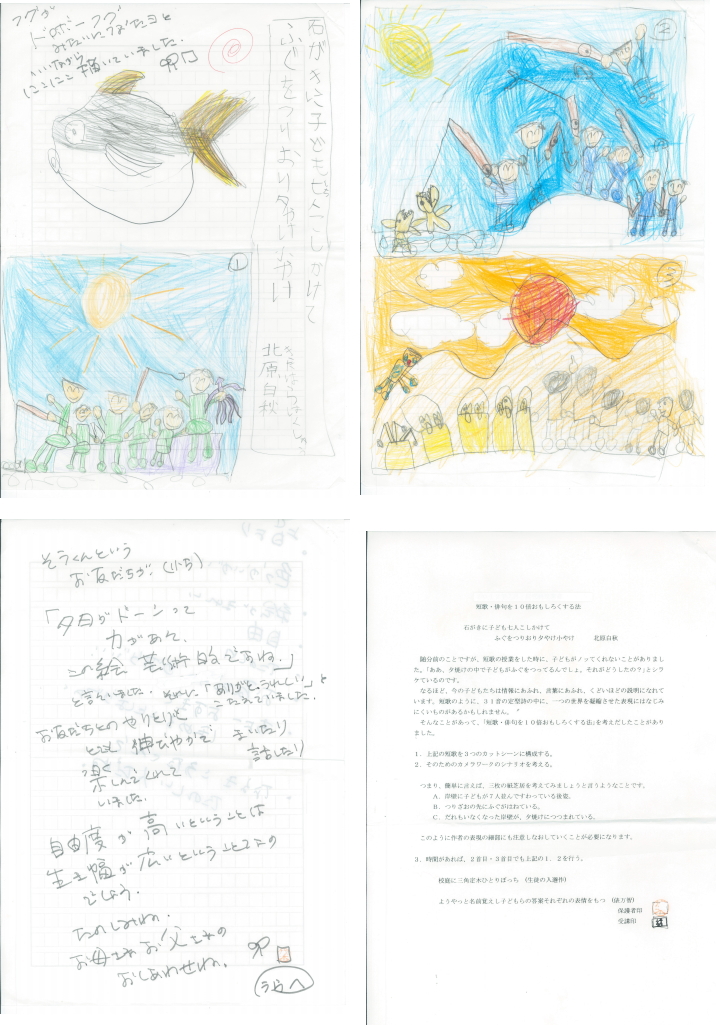 フグが
ドロボーフグ
にこにこ描いていました。
石がきに子ども七人こしかけて
ふぐをつりおり夕やけ小やけ
北原白秋
①
②
③
そうくんという
お友だちが、
「夕日がドーンって
力があって、
この絵 芸術的ですね。」
と言いました。それに「ありがとう。うれしい」と
こたえていました。
お友だちとのやりとりも
とても 伸びやかで
話したり
楽しんでくれて
いました。
自由度が 高いということは
生き幅が 広いということなの
でしょう。
たのしみね。
お母さま お父さまの
おしあわせね。
短歌・俳句を１０倍おもしろくする法
石がきに子ども七人こしかけて
ふぐをつりおり夕やけ小やけ　　北原白秋
随分前のことですが、短歌の授業をした時に、子どもがノッてくれないことがありまし
た。「ああ、夕焼けの中で子どもがふぐをつってるんでしょ。それがどうしたの？」とシラ
ケているのです。
なるほど、今の子どもたちは情報にあふれ、言葉にあふれ、くどいほどの説明になれて
います。短歌のように、３１音の定型詩の中に、一つの世界を凝縮させた表現にはなじみ
にくいものがあるかもしれません。
そんなことがあって、「短歌・俳句を１０倍おもしろくする法」を考えだしたことがあり
ました。
１．上記の短歌を３つのカットシーンに構成する。
２．そのためのカメラワークのシナリオを考える。
つまり、簡単に言えば、三枚の紙芝居を考えてみましょうと言うようなことです。
Ａ．岸壁に子どもが７人並んですわっている後姿。
Ｂ．つりざおの先にふぐがはねている。
Ｃ．だれもいなくなった岸壁が、夕焼けにつつまれている。
このように作者の表現の細部にも注意しなおしていくことが必要になります。
３．時間があれば、２首目・３首目でも上記の１．２を行う。
校庭に三角定木ひとりぼっち　（生徒の入選作）
ようやっと名前覚えし子どもらの答案それぞれの表情をもつ　（俵万智）
保護者印
受講印